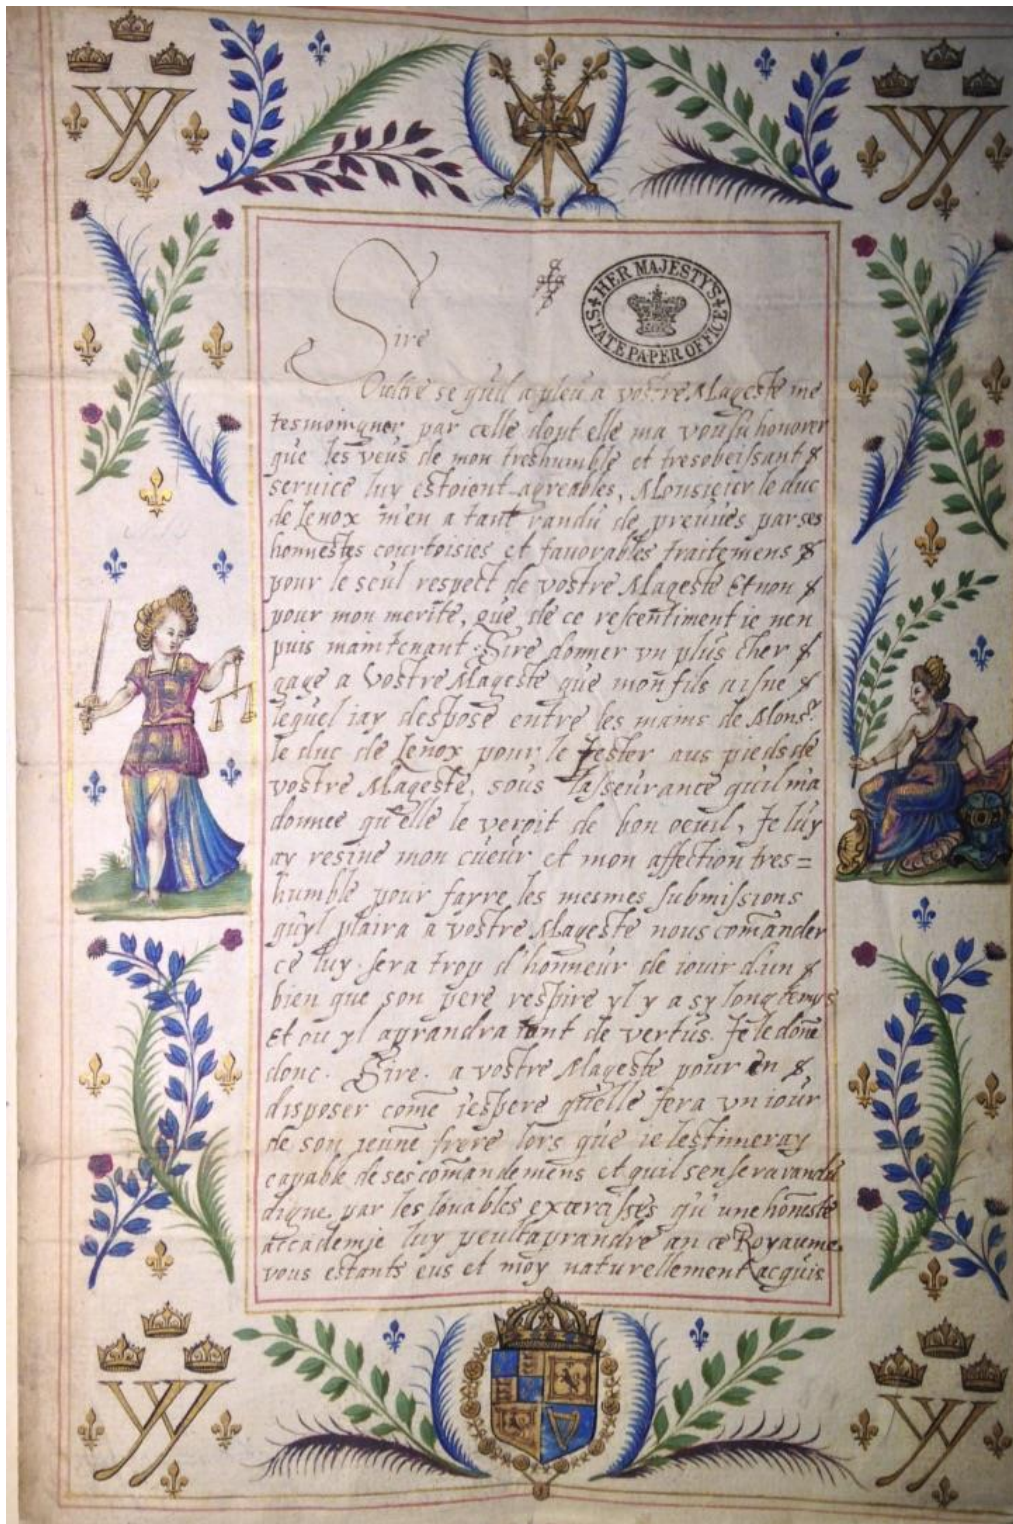 HER MAJESTY'S
STATE PAPER OFFICE
Sire
Oultre se qu'il a pleu a vostre Mageste me
tesmoingner par celle dont elle ma voulu honorer
que les veus de mon treshumble et tresobeissant
service luy estoient agreables, Monsieur le duc
de Lenox m'en a tant randu de preuves par ses
honnestes courtoisies et favorables traitemens
pour le seul respect de vostre Mageste Et non
pour mon merite, que de ce ressentiment ie nen
puis maintenant Sire donner vn plus cher
gage a Vostre Mageste que mon fils aisne
lequel iay desposé entre les mains de Monsr
le duc de Lenox pour le jester aus pieds de
vostre Mageste, sous lasseurance quil ma
donnee qu'elle le veroit de bon oeuil, Je luy
ay resiné mon cueur et mon affection tres=
humble pour farre les mesmes submissions
quyl plaira a vostre Mageste nous comãder
ce luy sera trop d'honneur de iouir d'un
bien que son pere respire yl y a sy long temps
Et ou yl aprandra tant de vertus. Je le done
donc. Sire. a vostre Mageste pour en
disposer come iespere quelle fera vn iour
de son jeune frere lors que ie lestimeray
capable de ses comandemens et quil sen sera randu
digne par les louables exercisses qu'une honeste
accademie luy peult aprandre an ce Royaume
vous estants eus et moy naturellement acquis